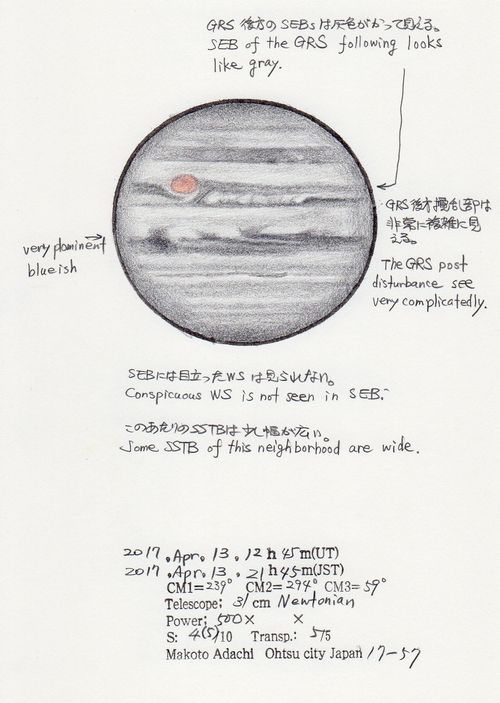 GRS後方のSEBsは灰色がかって見える。
SEB of the GRS following looks
like gray.
GRS後方攪乱部は
非常に複雑に見
える。
The GRS post
disturbance see
very complicatedly.
very dominent
blueish
SEBには目立ったWSは見られない。
Conspicuous WS is not seen in SEB.
このあたりのSSTBは少し幅が広い。
Some SSTB of this neighborhood are wide.
2017.Apr.13.12h45m(UT)
2017.Apr.13.21h45m(JST)
CM1=239° CM2=294° CM3=59°
Telescope: 31cm Newtonian
Power: 500× ×
S: 4(5)/10 Transp.: 5/5
Makoto Adachi Ohtsu city Japan 17-57